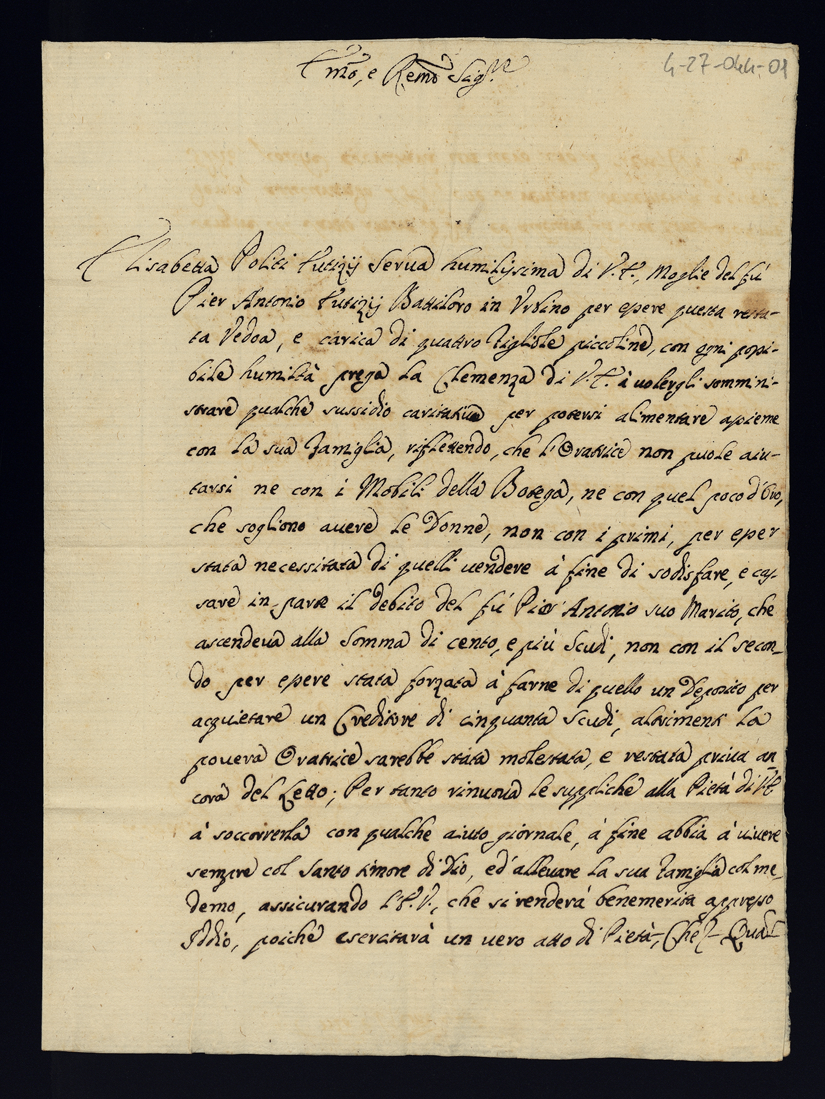 4-27-044-01
Emo, e Remo Sig.re
Elisabetta Politi Eutizij Serva humilissima di V.E., Moglie del fú
Pier Antonio Eutizij Battiloro in Urbino per essere questa resta-
ta Vedoa, e carica di quattro Figliole piccoline, con ogni possi-
bile humiltà prega la Clemenza di V.E. à volergli sommini-
strare qualche sussidio caritativo per potersi alimentare assieme
con la sua Famiglia, riflettendo, che l'Oratrice non puole aiu-
tarsi ne con i Mobili della Botega, ne con quel poco d'Oro,
che sogliono avere le Donne, non con i primi, per esser
stata necessitata di quelli vendere à fine di sodisfare, e cas-
sare in parte il debito del fú Pier Antonio suo Marito, che
ascendeva alla Somma di cento, e più Scudi, non con il secon-
do per essere stata forzata à farne di quello un Deposito per
acquietare un Creditore di cinquanta scudi, altrimenti la
povera Oratrice sarebbe stata molestata, e restata priva an
cora del Letto; Per tanto rinuova le suppliche alla Pietà di V.E.
à soccorrerla con qualche aiuto giornale, à fine abbia à vivere
sempre col Santo timore di Dio, ed'allevare la sua Famiglia col me,
demo, assicurando l'E.V., che si renderà benemerita appresso
Iddio, poiche esercitarà un vero atto di Pietà, Che